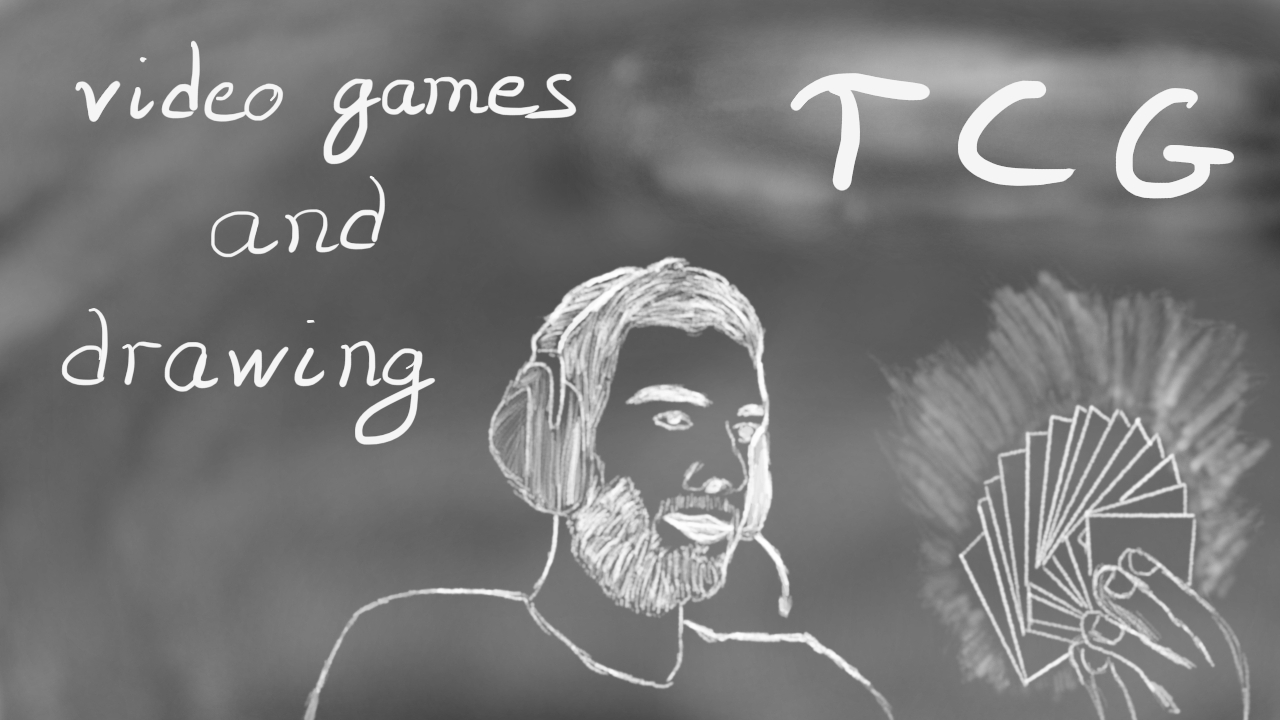 video games
and
drawing
TCG